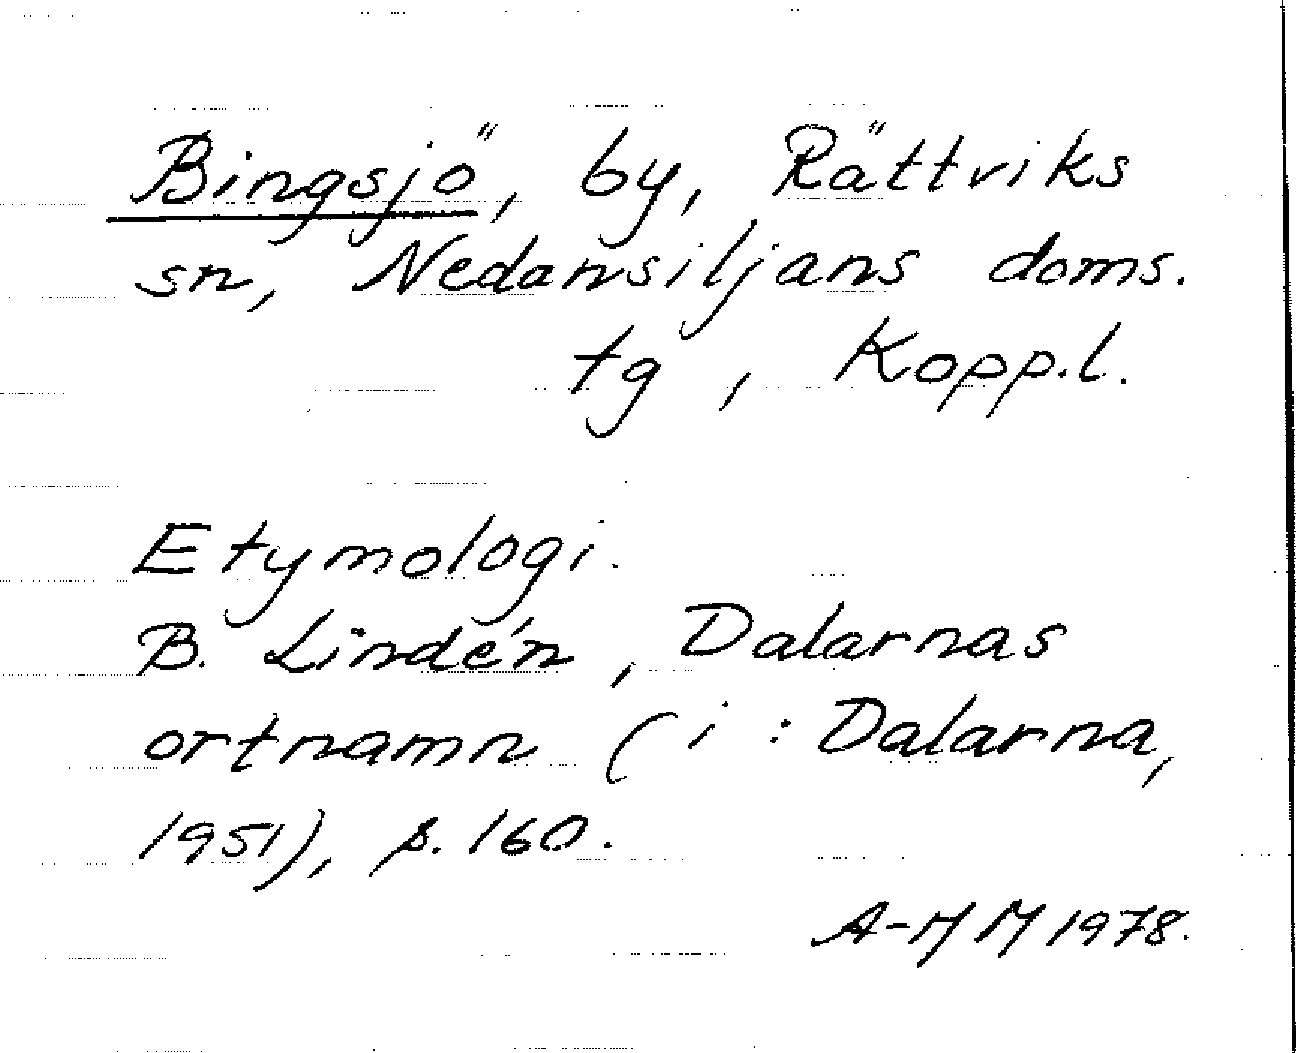 Bingsjö, by, Rättviks
sn, Nedansiljans doms.
tg, Kopp.l.
Etymologi.
B. Lindén, Dalarnas
ortnamn (i: Dalarna,
1951), s. 160.
A-MM 1978.